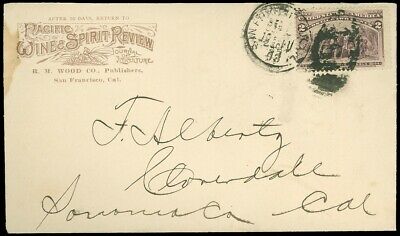 AFTER 10 DAYS, RETURN TO
PACIFIC
WINE & SPIRIT REVIEW
JOURNAL
VITICULTURE
R. M. WOOD CO., Publishers,
San Francisco, Cal.
SAN FRANCISCO
AMERICA
2
F. Albertz
Cloverdale
Sonoma Co Cal